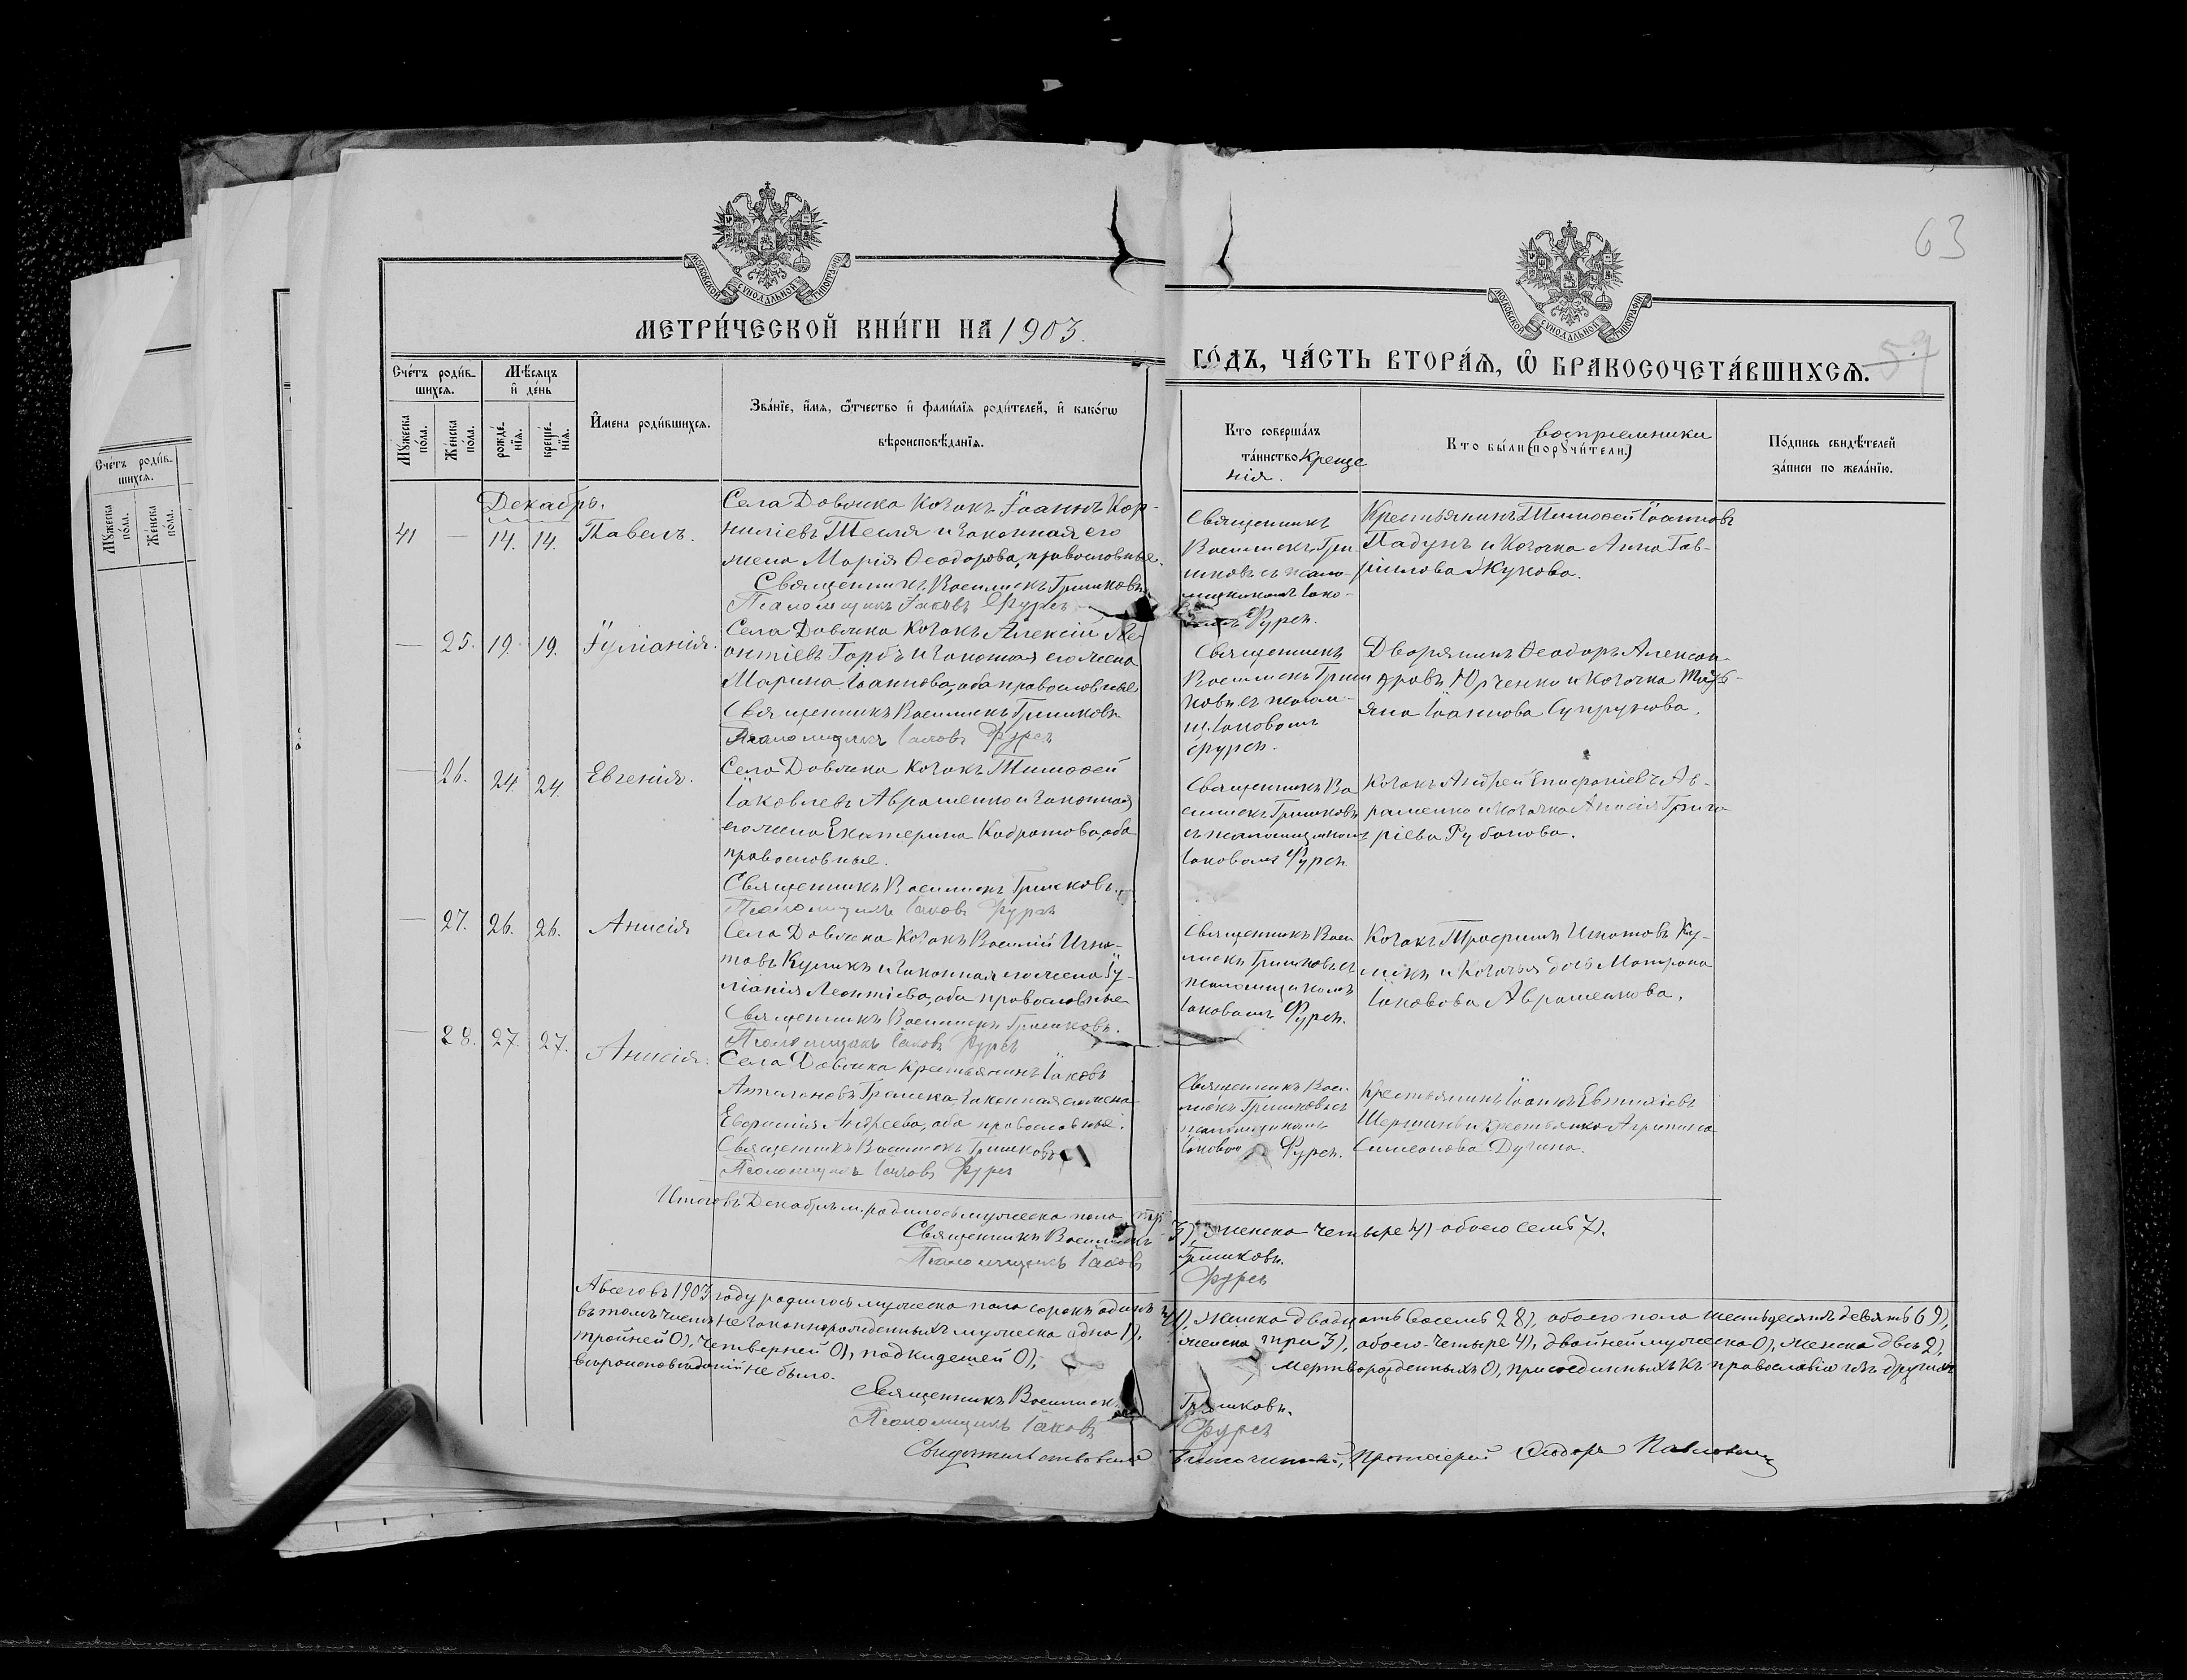 63
МОСКОВСКОЙ СѴНОДАЛЬНОЙ ТИПОГРАФІИ
МОСКОВСКОЙ СѴНОДАЛЬНОЙ ТИПОГРАФІИ
МЕТРИ́ЧЕСКОЙ КНИ́ГИ НА 1903.
ГО́ДЪ, ЧА́СТЬ ВТОРА́Я, Ѡ БРАКОСОЧЕТА́ВШИХСЯ. 59
Сче́тъ роди́в-
шихся.
Му́жеска по́ла.
Же́нска по́ла.
Мѣ́сяцъ
и де́нь
рожде́-
нія.
креще́-
нія.
Имена роди́вшихся.
Зва́ніе, и́мя, ѻ҆́тчество и фами́лія роди́телей, и како́гѡ
вѣроисповѣ́данія.
Кто соверша́лъ
та́инство Креще
нія.
восприемники
Кто бы́ли (поручи́тели.)
По́дпись свидѣ́телей
за́писи по жела́нію.
Сче́тъ роди́в-
шихся.
Му́жеска
по́ла.
Же́нска
по́ла.
Декабрь.
41 — 14. 14. Павелъ.
Села Довжика Козакъ Іоаннъ Кор-
ниліевъ Тесля и законная его
жена Марія Ѳеодорова, православные.
Священникъ Василискъ Гришковъ
Псаломщикъ Іаковъ Фурсъ
Священникъ
Василискъ Гри-
шковъ съ псало-
мщикомъ Іако-
вомъ Фурсъ.
Крестьянинъ Тимоѳей Іоанновъ
Падунъ и Козачка Анна Гав-
ріилова Жукова.
— 25. 19. 19. Іуліанія.
Села Довжика Козакъ Алексій Ле-
онтіевъ Горбъ и законная его жена
Марина Іоаннова, оба православные
Священникъ Василискъ Гришковъ
Псаломщикъ Іаковъ Фурсъ
Священникъ
Василискъ Гриш
ковъ съ псалом-
щ. Іаковомъ
Фурсъ.
Дворянинъ Ѳеодоръ Алексан-
дровъ Юрченко и Козачка
яна Іоаннова Супрунова.
— 26. 24 24. Евгенія.
Села Довжика Козакъ Тимоѳей
Іаковлевъ Авраменко и законная
его жена Екатерина Кодратова, оба
православные.
Священникъ Василискъ Гришковъ.
Псаломщикъ Іаковъ Фурсъ
Священникъ Ва
силискъ Гришковъ
съ псаломщикомъ
Іаковомъ Фурсъ.
Козакъ Андрей Епифаніевъ Ав-
раменко и козачка Анисія Григо
ріева Рубанова.
— 27. 26. 26. Анисія
Села Довжика Козакъ Василій Игна-
товъ Куликъ и законная его жена Іу-
ліанія Леонтіева, оба православные
Священникъ Василискъ Гришковъ.
Псаломщикъ Іаковъ Фурсъ
Священникъ Васи
лискъ Гришковъ съ
псаломщикомъ
Іаковомъ Фурсъ.
Козакъ Трофимъ Игнатовъ Ку-
ликъ и Козачья дочь Матрона
Іаковова Авраменкова.
— 28. 27. 27. Анисія.
Села Довжика Крестьянинъ Іаковъ
законная его жена
Евфросинія Андреева, оба православные.
Священникъ Василискъ Гришковъ
Псаломщикъ Іаковъ Фурсъ
Священникъ Васи
лискъ Гришковъ съ
псаломщикомъ
Іаковомъ Фурсъ.
Крестьянинъ Іоаннъ Евфиміевъ
и крестьянка Агрипина
Симеонова
Итого въ Декабрѣ м. родилось мужеска пола три 3), женска четыре 4) обоего семь 7).
Священникъ Василискъ Гришковъ.
Псаломщикъ Іаковъ Фурсъ
А всего въ 1903 году родилось мужеска пола сорокъ одинъ 41), женска двадцать восемь 28), обоего пола шестьдесятъ девять 69),
въ томъ числѣ незаконнорожденныхъ мужеска одно 1), женска три 3), обоего четыре 4), двойней мужеска 0), женска двѣ 2),
тройней 0), четверней 0), подкидышей 0), мертворожденныхъ 0), присоединенныхъ къ православію изъ другихъ
вѣроисповѣданій не было.
Священникъ Василискъ Гришковъ.
Псаломщикъ Іаковъ Фурсъ
Свидѣтельствовалъ Благочинный, Протоіерей Ѳеодоръ